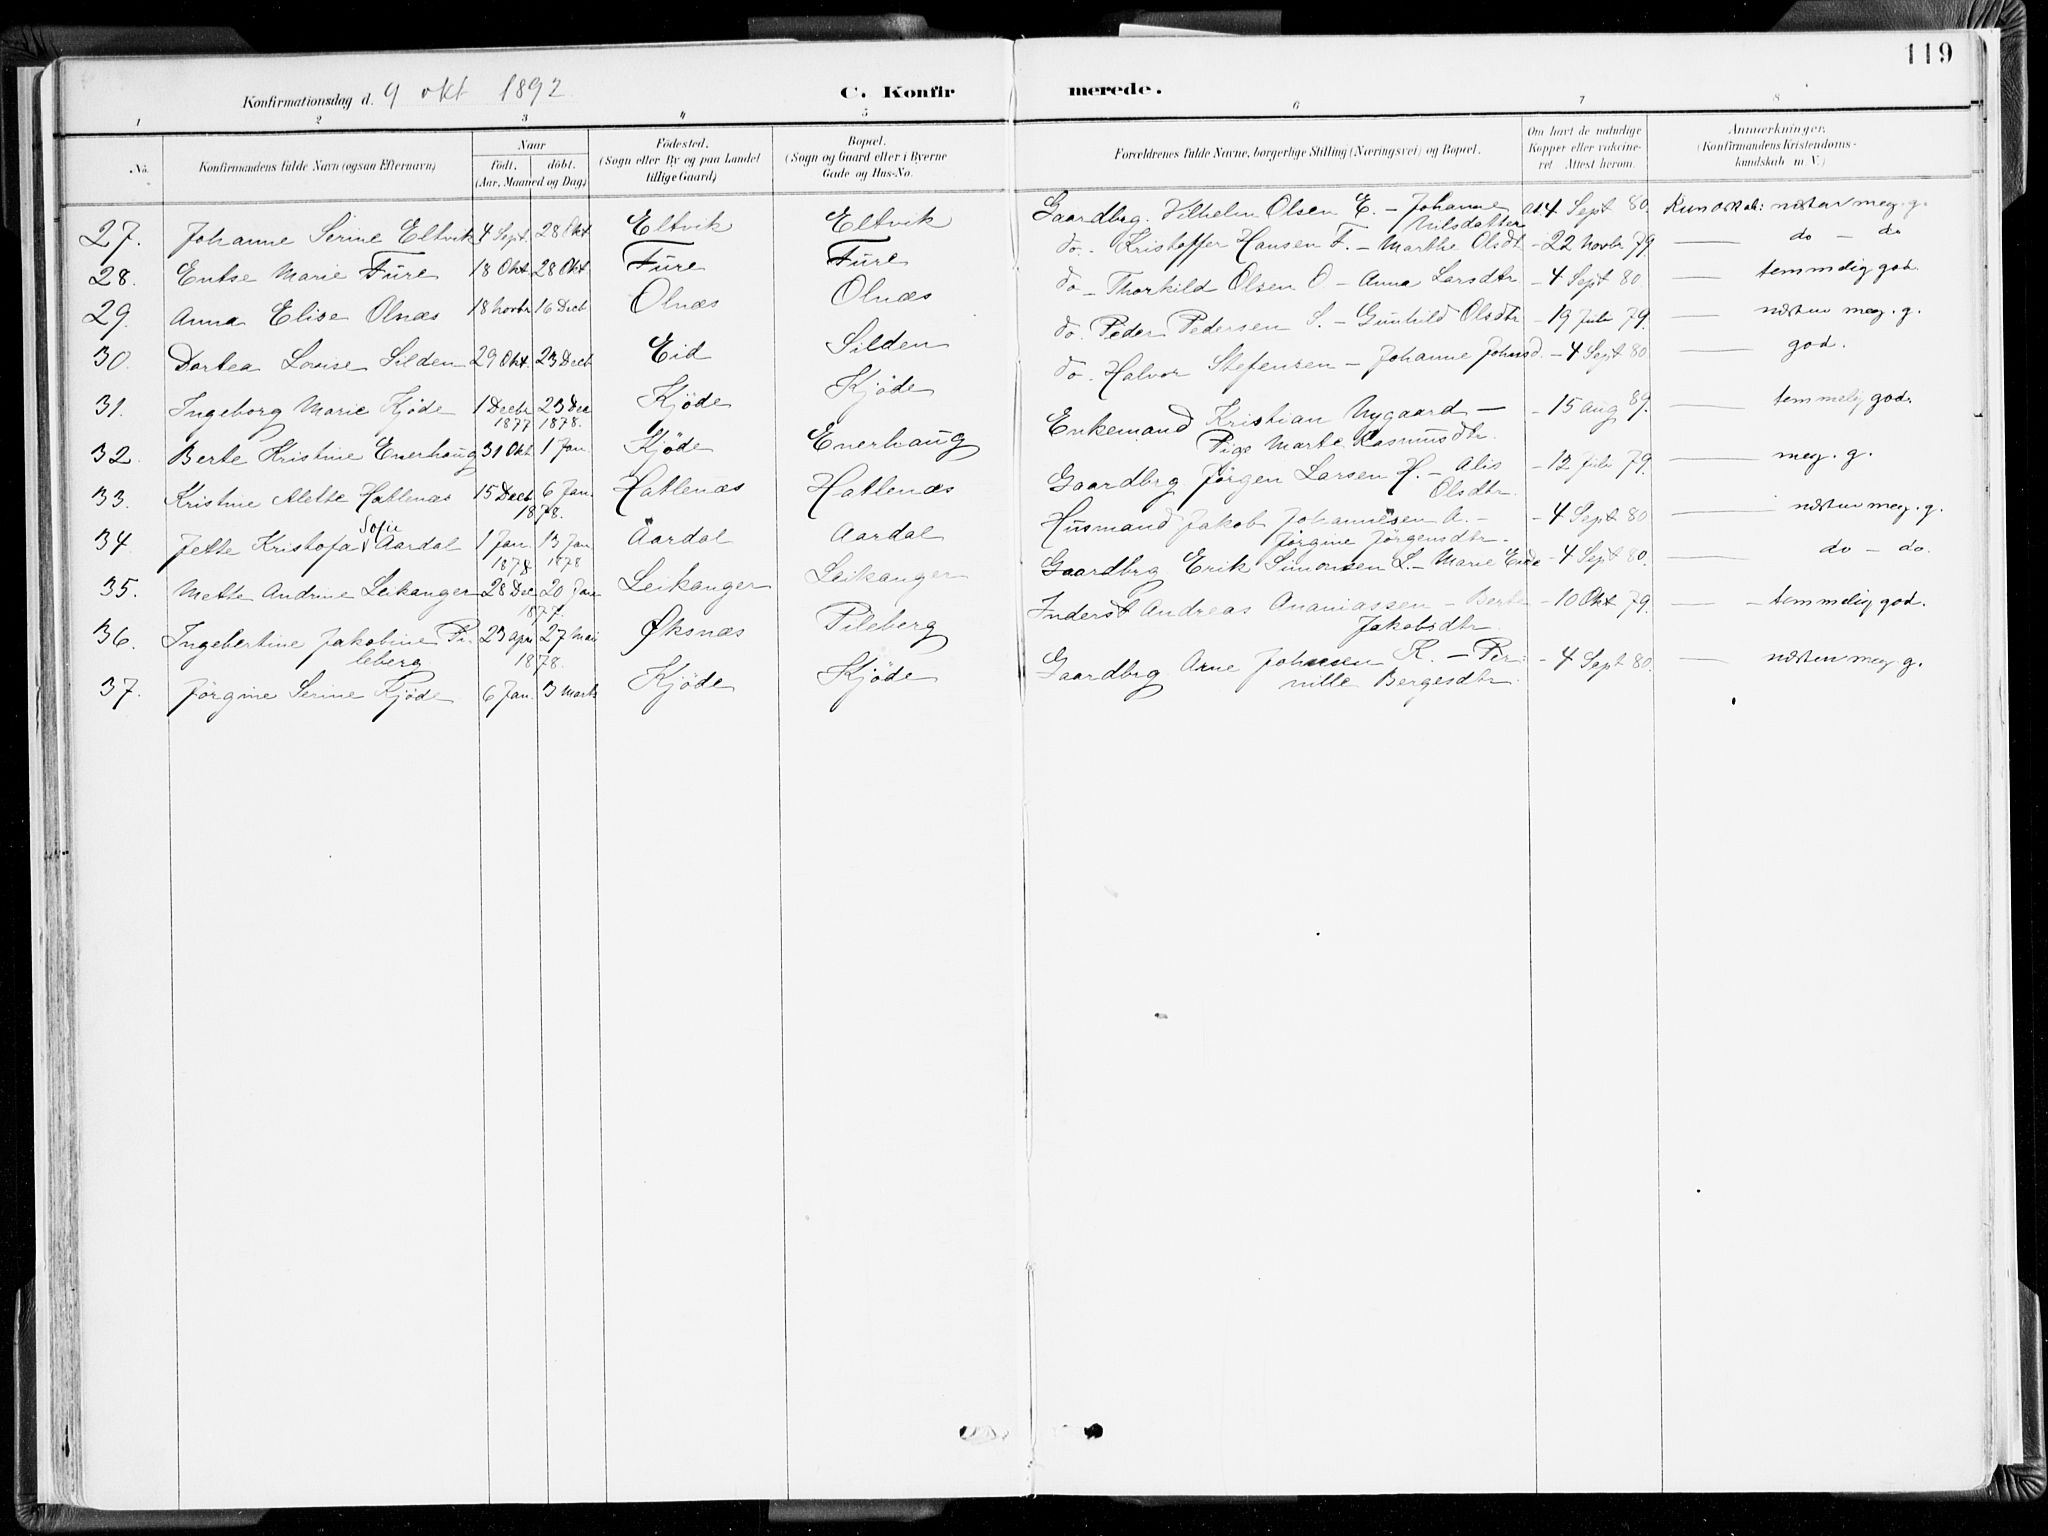 119
Konfirmationsdag d. 9 okt 1892
C. Konfirmerede.
1 2 3 4 5 6 7 8
No. Konfirmandens fulde Navn (ogsaa Efternavn) Naar födt. döbt. (Aar, Maaned og Dag) Födested. (Sogn eller By og paa Landet tillige Gaard) Bopæl. (Sogn og Gaard eller i Byerne Gade og Hus-No. Forældrenes fulde Navne, borgerlige Stilling (Næringsvei) og Bopæl. Om havt de naturlige Kopper eller vaccineret Attest herom. Anmærkninger. (Konfirmandens Kristendomskundskab m. V.)
27. Johanne Serine Eltvik 4 Sept. 28 Okt Eltvik Eltvik Gaardbrg. Vilhelm Olsen E. – Johanne Nilsdatter At 4 Sept 80. Kundskab: næsten meg. g.
28. Entse Marie Füre 18 Okt. 28 Okt. Füre Füre do. Kristoffer Hansen F. – Marthe Olsdt – 22 Novbr 79 — do – do
29. Anna Elise Olnæs 18 Novbr 16 Decb Olnæs Olnæs do – Thorkild Olsen O – Anna Larsdtr – 4 Sept 80 — temmelig god.
30. Dortea Lovise Silden 29 Okt. 23 Decb Eid Silden do. Peder Pedersen S. – Gunhild Olsdtr – 19 Juli 79. — næsten meg. g.
31. Ingeborg Marie Kjöde 1 Decbr 1877 23 Dec 1878. Kjöde Kjöde do. Halvor Stefensen – Johanne Johnsd. – 4 Sept 80 — god.
32. Berte Kristine Enerhaug 31 Okt 1 Jan Kjöde Enerhaug Enkemand Kristian Nygaard – Pige Marte Rasmusdtr. – 15 Aug 89. — temmelig god.
33. Kristine Alette Hatlenæs 15 Decb 6 Jan. 1878. Hatlenæs Hatlenæs Gaardbrg Jörgen Larsen H. – Alis Olsdtr. – 12 Juli 79. — meg. g.
34. Jette Kristofa Sofie Aardal 1 Jan. 1878 13 Jan 1878 Aardal Aardal Husmand Jakob Johannesen A. – Jörgine Jörgensdtr. – 4 Sept 80 — næsten meg. g.
35. Mette Andrine Leikanger 28 Dec 20 Jan 1877. Leikanger Leikanger Gaardbrg Erik Simonsen L. – Marie Ende – 4 Sept 80. — do – do.
36. Ingebertine Jakobine Pileberg 23 Apr 27 Mai 1878. Øksnæs Pileberg Inderst Andreas Ananiassen – Berte Jakobsdtr. – 10 Okt 79. — – temmelig god.
37. Jörgine Serine Kjöde 6 Jan. 3 Marts Kjöde Kjöde Gaardbrg Arne Johnsen K. – Pernille Bergesdtr. – 4 Sept 80. — næsten meg g.